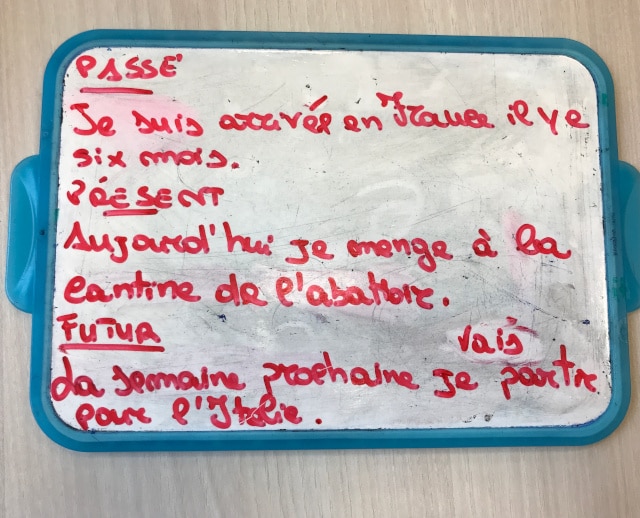 PASSÉ
Je suis arrivée en France il y a
six mois.
PRÉSENT
Aujourd'hui je mange à la
cantine de l'abattoir.
FUTUR
vais
La semaine prochaine je partir
pour l'Italie.